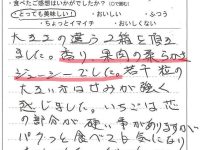 ・食べたご感想はいかがでしたか？
・とっても美味しい！ ・おいしい ・ふつう
・ちょっとイマイチ ・おいしくない
大きさの違う2箱を頂き
ました。香り、果肉の柔らかさ
ジューシーでした。若干粒の
大きい方は甘みが強く
感じました。いちごは芯
の部分が硬い事がありますが
パクっと食べても気になり